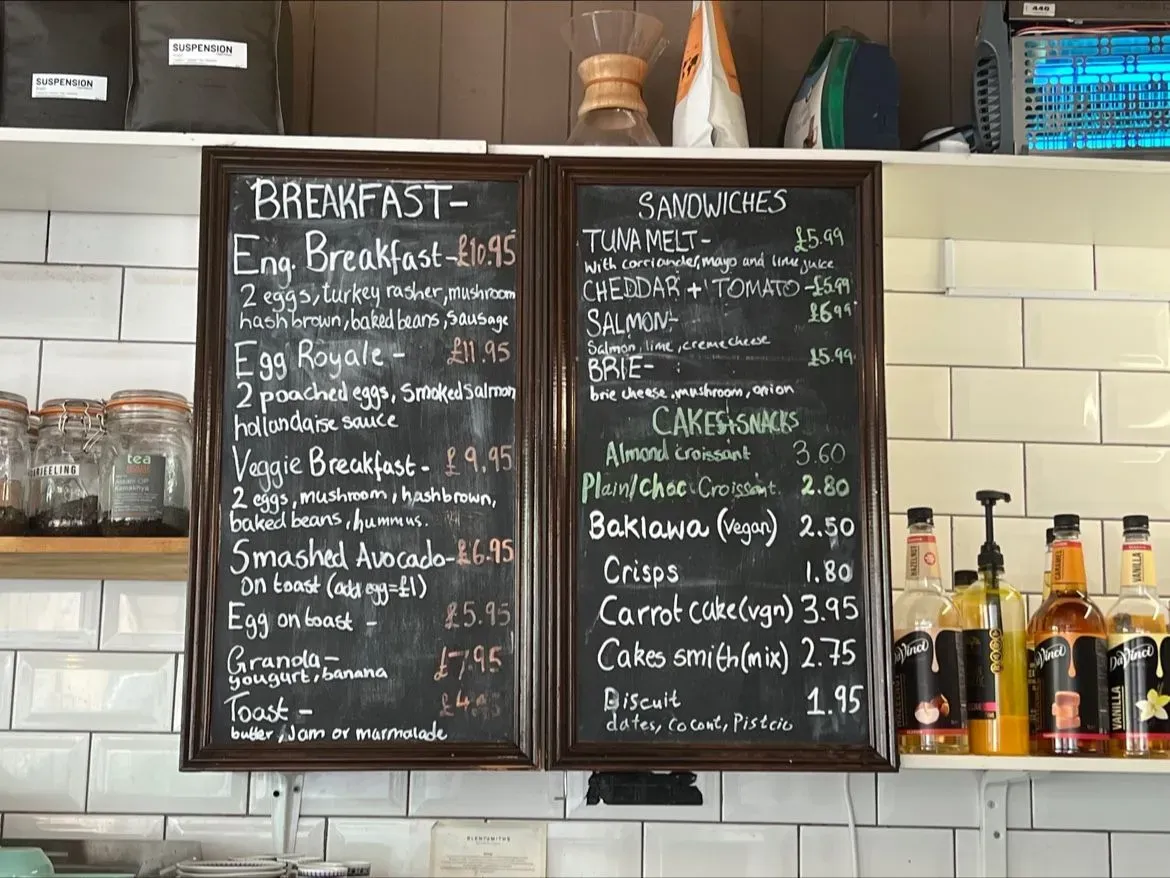 SUSPENSION
SUSPENSION
440
BREAKFAST-
Eng. Breakfast-£10.95
2 eggs, turkey rasher, mushroom
hash brown, baked beans, sausage
Egg Royale - £11.95
2 poached eggs, Smoked Salmon
hollandaise sauce
Veggie Breakfast - £9.95
2 eggs, mushroom, hashbrown,
baked beans, hummus.
Smashed Avocado-£6.95
on toast (add egg=£1)
Egg on toast - £5.95
Granola- £7.95
yougurt, banana
Toast -
butter, Jam or marmalade
SANDWICHES
TUNA MELT- £5.99
with corriander, mayo and lime juice
CHEDDAR + TOMATO -£5.99
SALMON- £6.99
Salmon, lime, creme cheese
BRIE- £5.99
brie cheese, mushroom, onion
CAKES+SNACKS
Almond croissant 3.60
Plain/choc Croissant 2.80
Baklawa (vegan) 2.50
Crisps 1.80
Carrot cake(vgn) 3.95
Cakes smith(mix) 2.75
Biscuit 1.95
dates, Cocont, Pistcio
tea
HAZELNUT
DaVinci
CARAMEL
DaVinci
VANILLA
DaVinci
VANILLA